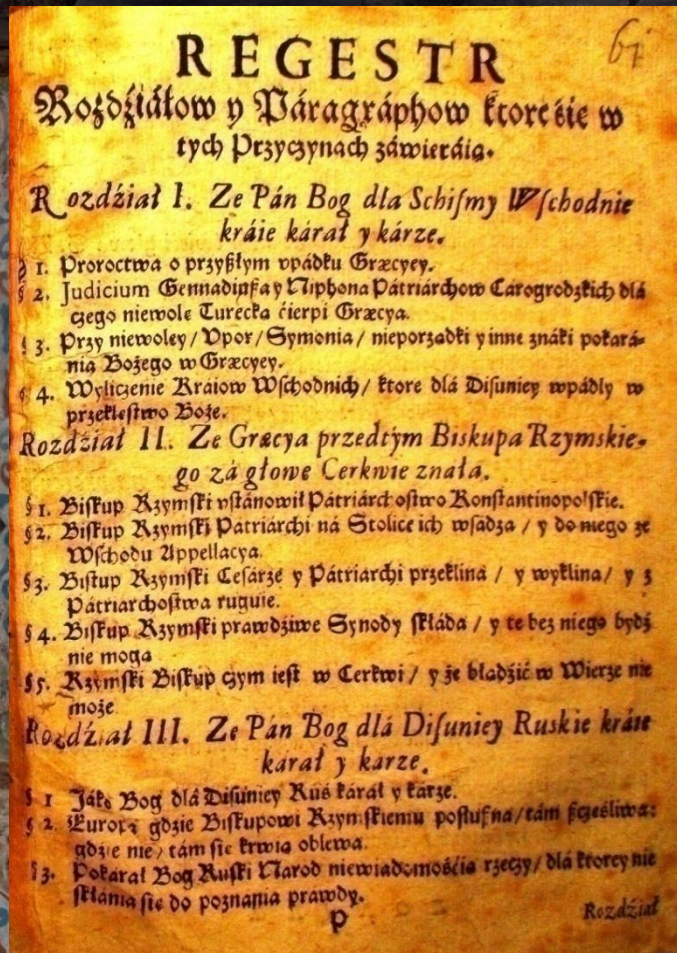 61
REGESTR
Rozdźiałow y Páragráphow ktore śie w
tych Przyczynach záwieráią.
Rozdźiał I. Ze Pán Bog dla Schiſmy Wſchodnie
kráie kárał y kárze.
§ 1. Proroctwa o przyßłym vpádku Græcyey.
§ 2. Judicium Gennadiußa y Niphona Pátriárchow Carogrodzkich dlá
czego niewole Turecka ćierpi Græcya.
§ 3. Przy niewoley / Vpor / Symonia / nieporzadki y inne znáki pokará-
nia Bożego w Græcyey.
§ 4. Wyliczenie Kráiow Wſchodnich / ktore dlá Diſuniey wpádly w
przekleſtwo Boże.
Rozdźiał II. Ze Græcya przedtým Biskupa Rzymskie-
go zá głowe Cerkwie znáła.
§ 1. Biſkup Rzymſki vſtánowił Pátriárchoſtwo Konſtantinopolſkie.
§ 2. Biſkup Rzymſki Pátriárchi ná Stolice ich wſadza / y do niego ze
Wſchodu Appellacya.
§ 3. Biſkup Rzymſki Ceſárze y Pátriárchi przeklina / y wyklina / y z
Pátriarchoſtwa ruguie.
§ 4. Biſkup Rzymſki prawdźiwe Synody ſkłáda / y te bez niego bydź
nie moga
§ 5. Rzymſki Biſkup czym ieſt w Cerkwi / y że bładźić w Wierze nie
może
Rozdźiał III. Ze Pán Bog dlá Diſuniey Ruskie kráie
kárał y karze.
§ 1 Jáko Bog dlá Diſuniey Ruś kárał y karze.
§ 2. Europá gdzie Biſkupowi Rzymſkiemu poſłuſna / tám ßcześliwa:
gdźie nie / tám śie krwia oblewa.
§ 3. Pokarał Bog Ruſki Narod niewiadomośćia rzeczy / dlá ktorey nie
ſkłania śie do poznania prawdy.
P
Rozdźiał